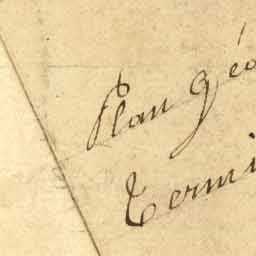 Plan géo
Termi